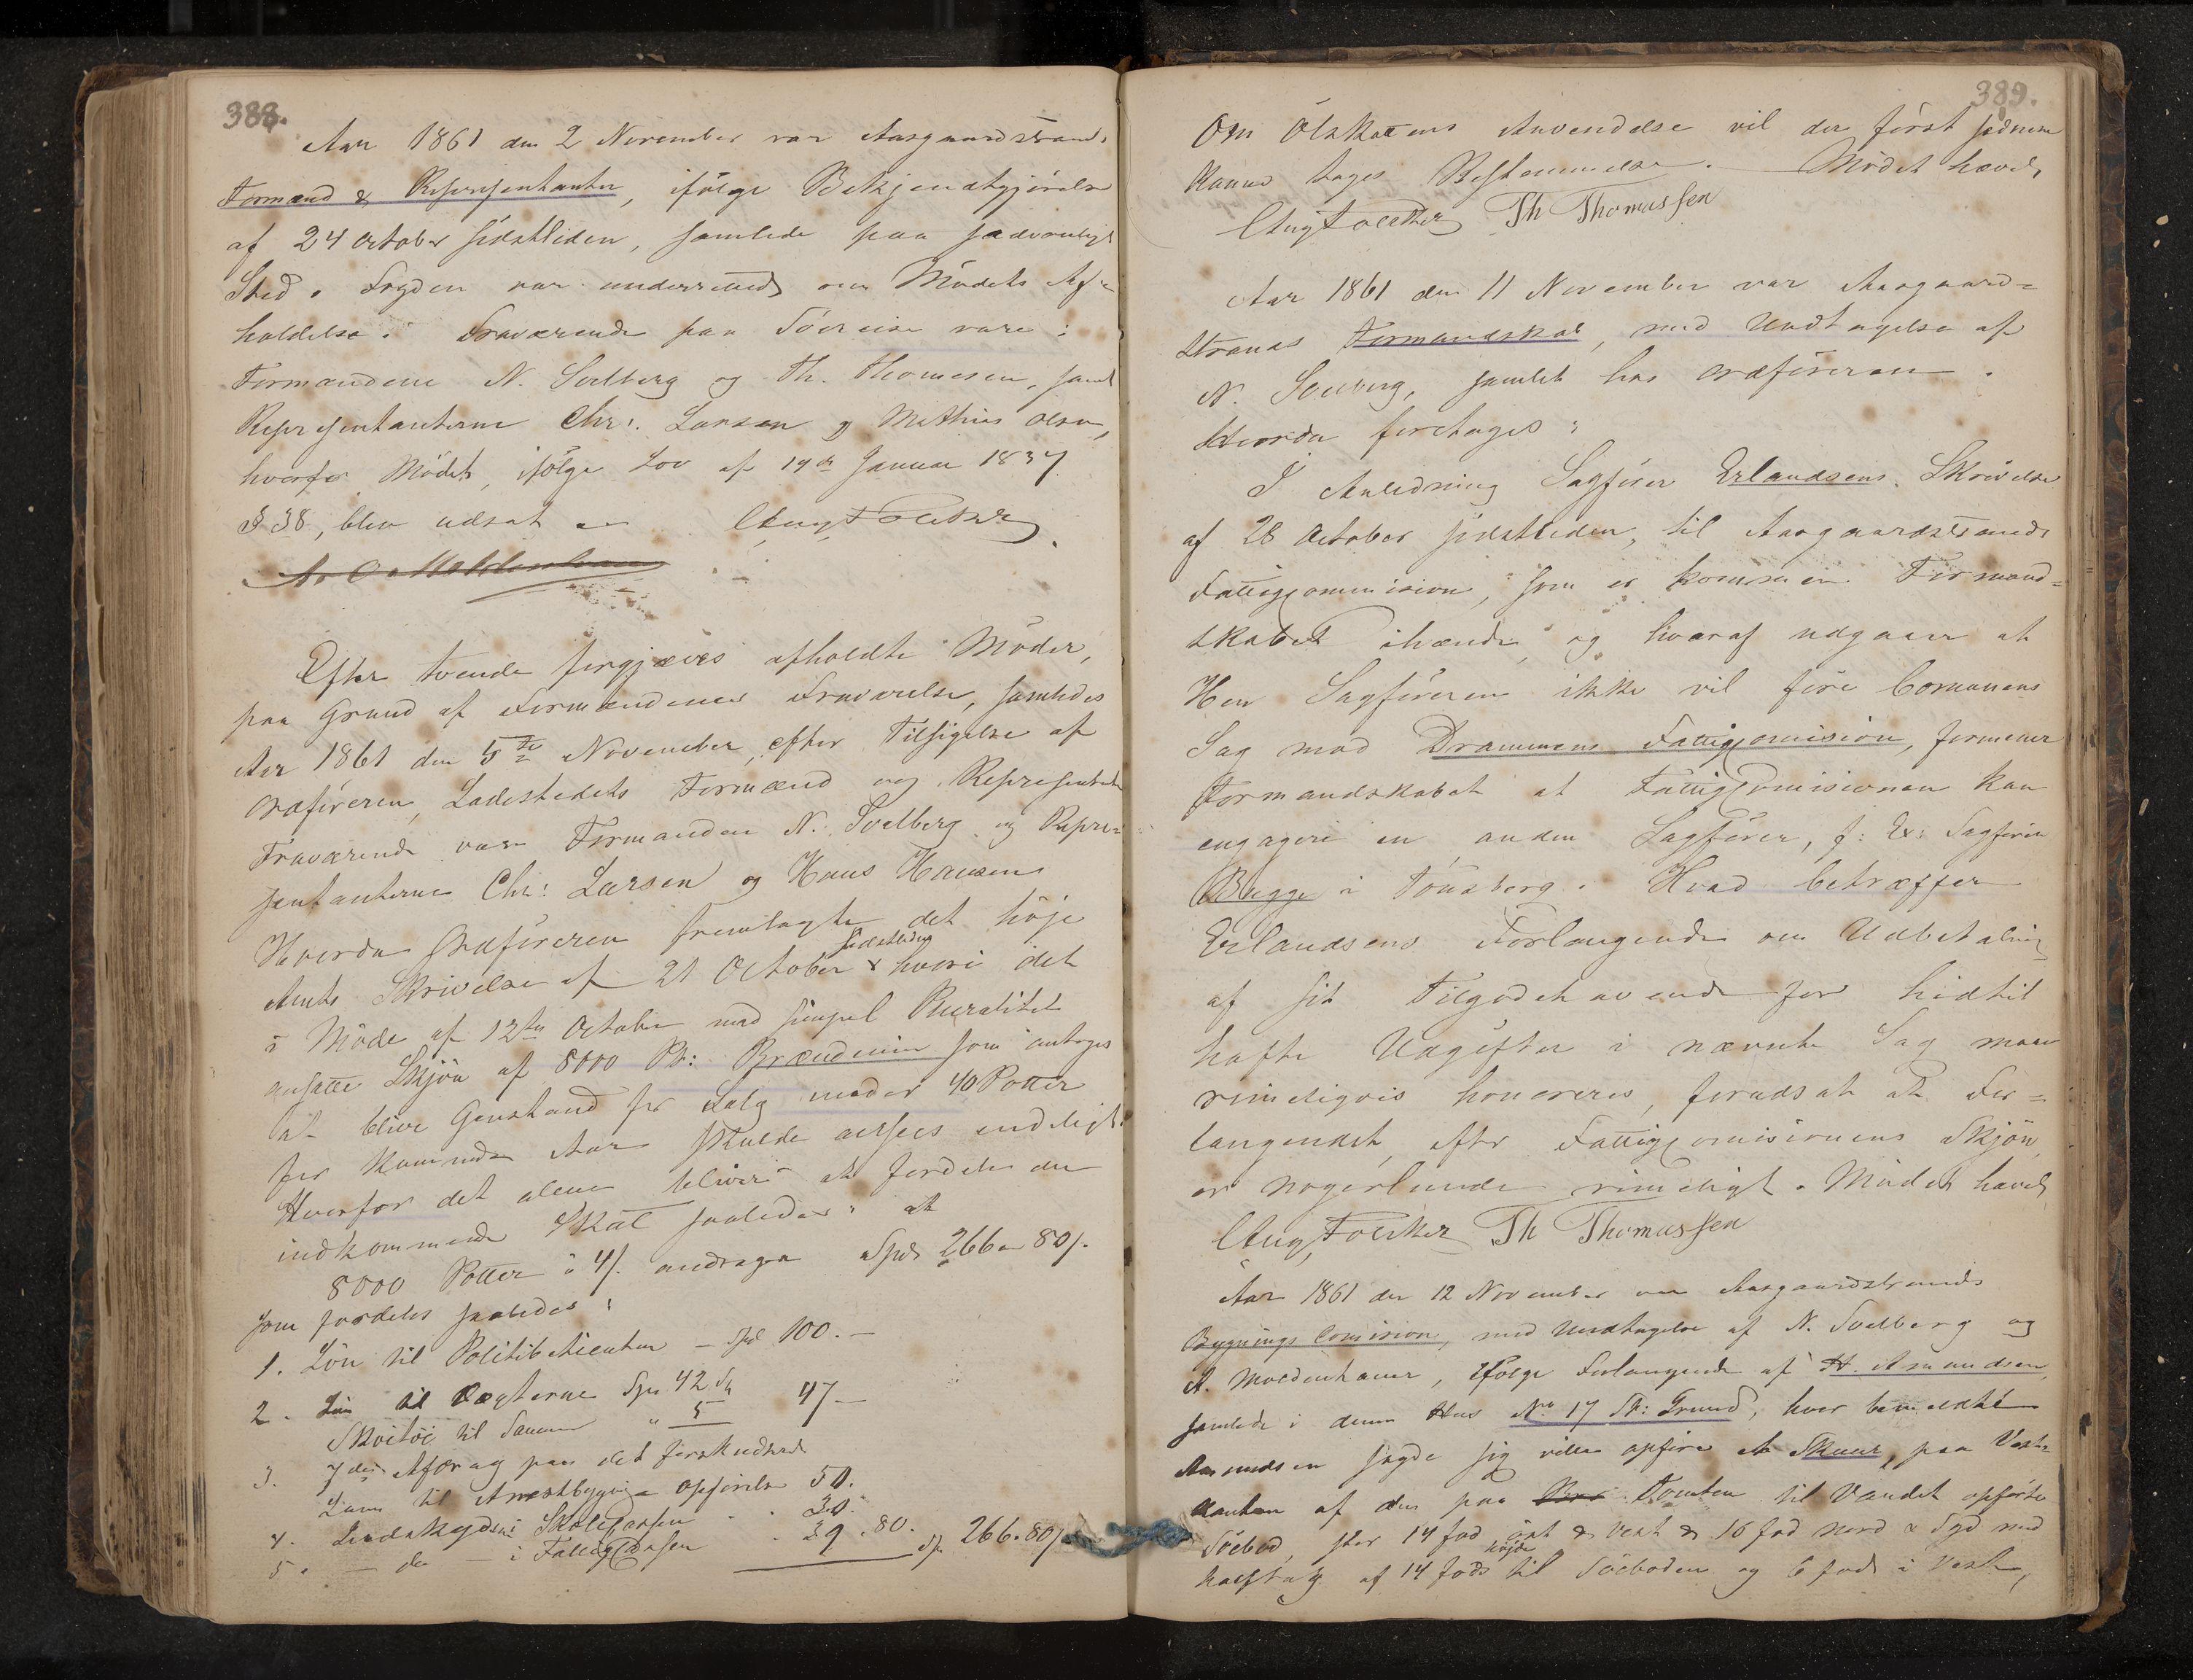 388.
Aar 1861 den 2 November var Aasgaardstrands
Formænd & Repræsentanter, ifölge Bekjendtgjörelse
af 24 October sidstleden, samlede paa sædvanligt
Sted. Fogden var underrettet om Mödets Af-
holdelse. Fraværende paa Söereise vare:
Formændene N. Solberg og Th. Thomesen, samt
Repræsentanterne Chr. Larsen og Mathias Olsen,
hvorfor Mödet, ifölge Lov af 14de Januar 1837
§ 38, blev udsat Aug Foelker
A. C. Moldenhauer
Efter tvende forgjæves afholdte Möder,
paa Grund af Formændenes Fraværelse, samledes
Aar 1861 den 5te November, efter Tilsigelse af
Ordföreren, Ladestedets Formænd og Repræsentanter
Fraværende var Formanden N. Solberg og Repræ-
sentanterne Chr: Larsen og Hans Hansen
Hvorda Ordföreren fremlagte det höje
Amts Skrivelse af 21 October sidstleden hvori det
i Möde af 12te October med simpel Pluralitet
ansatte Skjön af 8000 Pt: Brændeviin som antages
at blive Genstand for Salg under 40 Potter
for kommende Aar skulde ansees endeligt.
Hvorfor det alene bliver at fordele den
indkommende Skat saaledes: at
8000 Potter a 4/. andrager Spd 266 80/.
som fordeles saaledes:
1. Lön til Politibetienten - Spd 100. -
2. Lön til Vægterne Spd 42
Skoetöi til Samme " 5 47 -
3. 7de Afdrag paa det forskudte
Laan til Arrestbygnings Opförelse 50.
4. Lindskydse i Skolekassen . . 30.
5. - do - i Fattigkassen . 39.80. Sp. 266.80/.
389.
Om Ölskattens Anvendelse vil der först sednere
kunne tages Bestemmelse. Mödet hævet,
Aug Foelker Th Thomassen
Aar 1861 den 11 November var Aasgaard-
strands Formandskab, med Undtagelse af
N. Solberg, samlet hos Ordföreren.
Hvorda foretages:
I Anledning Sagförer Erlandsens Skrivelse
af 28 October sidstleden, til Aasgaardstrands
Fattigcommision, som er kommen Formand-
skabet ihænde, og hvoraf udgaaer at
Herr Sagföreren ikke vil före Comunens
Sag mod Drammens Fattigcomision, formener
Formandskabet at Fattigcomisionen kan
engagere en anden Sagförer, f: Ex: Sagförer
Bugge i Tönsberg. Hvad betræffer
Erlandsens Forlangende om Udbetaling
af sit Tilgodehavende for hidtil
hafte Udgifter i nævnte Sag maae
rimeligvis honoreres, forudsat at For-
langendet, efter Fattigcomisionens Skjön,
er nogenlunde rimeligt. Mödet hævet
Aug, Foelker Th Thomassen
Aar 1861 den 12 November var Aasgaardstrands
Bygnings Comision, med Undtagelse af N. Solberg og
A. Moldenhauer, ifölge Forlangende af H. Amundsen,
samlede i denne Hus No 17 St: Grund, hvor bemeldte
Amundsen sagde sig ville opföre et Skuur, paa Vest-
kanten af den paa Tomten til Vandet opförte
Söebod, stor 14 fod öst & Vest & 16 fod Nord & Syd med
halftag af 14 fods höjde til Söeboden og 6 fods i Vest,